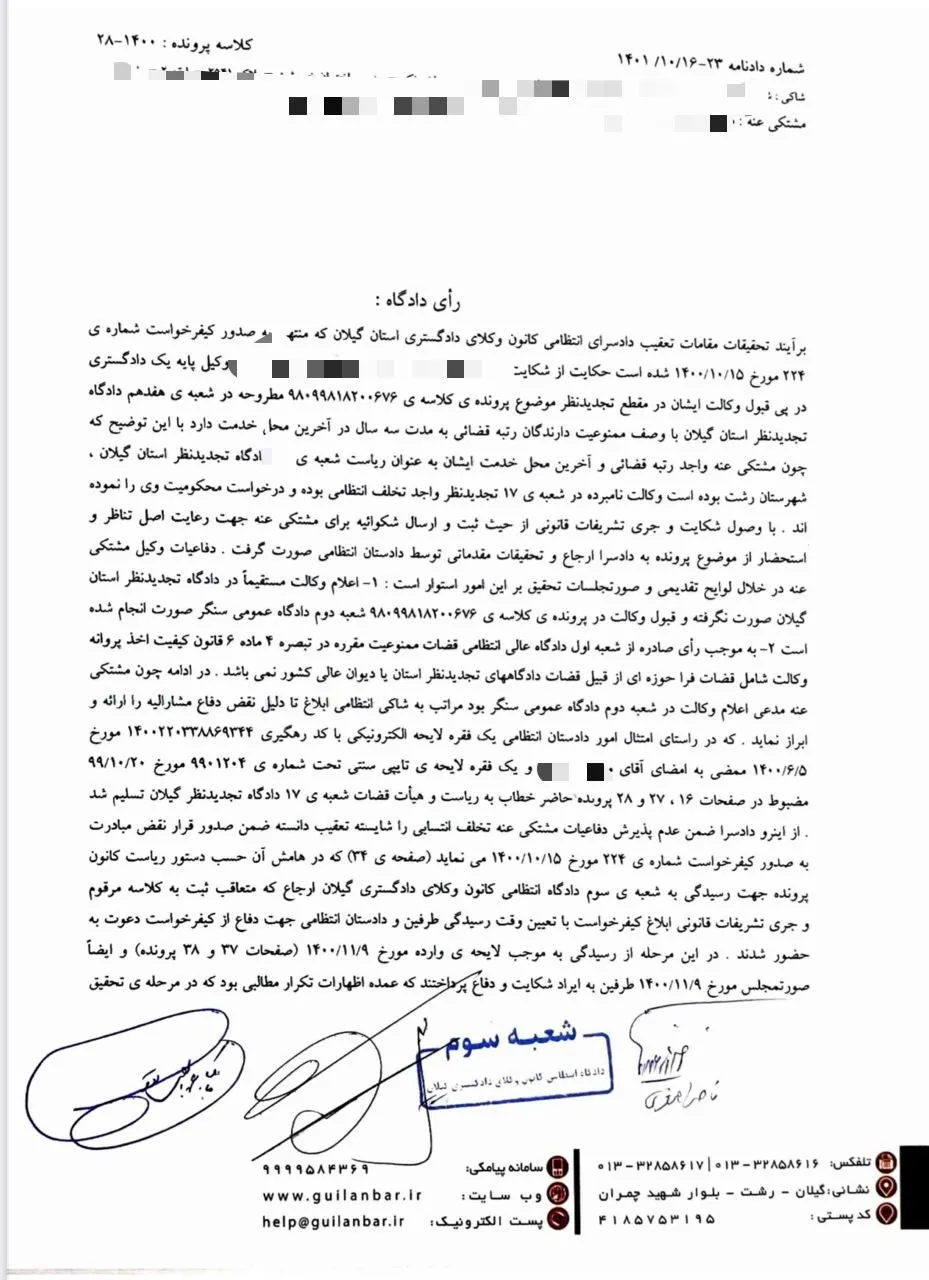 کلاسه پرونده : ۱۴۰۰-۲۸
شماره دادنامه ۲۳-۱۴۰۱/۱۰/۱۶
شاکی :
مشتکی عنه :
رأی دادگاه :
برآیند تحقیقات مقامات تعقیب دادسرای انتظامی کانون وکلای دادگستری استان گیلان که منتهی به صدور کیفرخواست شماره ی
۲۲۴ مورخ ۱۴۰۰/۱۰/۱۵ شده است حکایت از شکایت وکیل پایه یک دادگستری
در پی قبول وکالت ایشان در مقطع تجدیدنظر موضوع پرونده ی کلاسه ی ۹۸۰۹۹۸۱۸۲۰۰۶۷۶ مطروحه در شعبه ی هفدهم دادگاه
تجدیدنظر استان گیلان با وصف ممنوعیت دارندگان رتبه قضائی به مدت سه سال در آخرین محل خدمت دارد با این توضیح که
چون مشتکی عنه واجد رتبه قضائی و آخرین محل خدمت ایشان به عنوان ریاست شعبه ی دادگاه تجدیدنظر استان گیلان ،
شهرستان رشت بوده است وکالت نامبرده در شعبه ی ۱۷ تجدیدنظر واجد تخلف انتظامی بوده و درخواست محکومیت وی را نموده
اند . با وصول شکایت و جری تشریفات قانونی از حیث ثبت و ارسال شکوائیه برای مشتکی عنه جهت رعایت اصل تناظر و
استحضار از موضوع پرونده به دادسرا ارجاع و تحقیقات مقدماتی توسط دادستان انتظامی صورت گرفت . دفاعیات وکیل مشتکی
عنه در خلال لوایح تقدیمی و صورتجلسات تحقیق بر این امور استوار است : ۱- اعلام وکالت مستقیماً در دادگاه تجدیدنظر استان
گیلان صورت نگرفته و قبول وکالت در پرونده ی کلاسه ی ۹۸۰۹۹۸۱۸۲۰۰۶۷۶ شعبه دوم دادگاه عمومی سنگر صورت انجام شده
است ۲- به موجب رأی صادره از شعبه اول دادگاه عالی انتظامی قضات ممنوعیت مقرره در تبصره ۴ ماده ۶ قانون کیفیت اخذ پروانه
وکالت شامل قضات فرا حوزه ای از قبیل قضات دادگاههای تجدیدنظر استان یا دیوان عالی کشور نمی باشد . در ادامه چون مشتکی
عنه مدعی اعلام وکالت در شعبه دوم دادگاه عمومی سنگر بود مراتب به شاکی انتظامی ابلاغ تا دلیل نقض دفاع مشارالیه را ارائه و
ابراز نماید . که در راستای امتثال امور دادستان انتظامی یک فقره لایحه الکترونیکی با کد رهگیری ۱۴۰۰۲۲۰۳۳۸۸۶۹۳۴۴ مورخ
۱۴۰۰/۶/۵ ممضی به امضای آقای و یک فقره لایحه ی تایپی سنتی تحت شماره ی ۹۹۰۱۲۰۴ مورخ ۹۹/۱۰/۲۰
مضبوط در صفحات ۱۶ ، ۲۷ و ۲۸ پرونده حاضر خطاب به ریاست و هیأت قضات شعبه ی ۱۷ دادگاه تجدیدنظر گیلان تسلیم شد
. از اینرو دادسرا ضمن عدم پذیرش دفاعیات مشتکی عنه تخلف انتسابی را شایسته تعقیب دانسته ضمن صدور قرار نقض مبادرت
به صدور کیفرخواست شماره ی ۲۲۴ مورخ ۱۴۰۰/۱۰/۱۵ می نماید (صفحه ی ۳۴) که در هامش آن حسب دستور ریاست کانون
پرونده جهت رسیدگی به شعبه ی سوم دادگاه انتظامی کانون وکلای دادگستری گیلان ارجاع که متعاقب ثبت به کلاسه مرقوم
و جری تشریفات قانونی ابلاغ کیفرخواست با تعیین وقت رسیدگی طرفین و دادستان انتظامی جهت دفاع از کیفرخواست دعوت به
حضور شدند . در این مرحله از رسیدگی به موجب لایحه ی وارده مورخ ۱۴۰۰/۱۱/۹ (صفحات ۳۷ و ۳۸ پرونده) و ایضاً
صورتمجلس مورخ ۱۴۰۰/۱۱/۹ طرفین به ایراد شکایت و دفاع پرداختند که عمده اظهارات تکرار مطالبی بود که در مرحله ی تحقیق
شعبه سوم
دادگاه انتظامی کانون وکلای دادگستری گیلان
تلفکس: ۰۱۳-۳۲۸۵۸۶۱۶ | ۰۱۳-۳۲۸۵۸۶۱۷
نشانی:گیلان - رشت - بلوار شهید چمران
کد پستی : ۴۱۸۵۷۵۳۱۹۵
سامانه پیامکی: ۹۹۹۹۵۸۴۳۶۹
وب سایت : www.guilanbar.ir
پست الکترونیک: help@guilanbar.ir